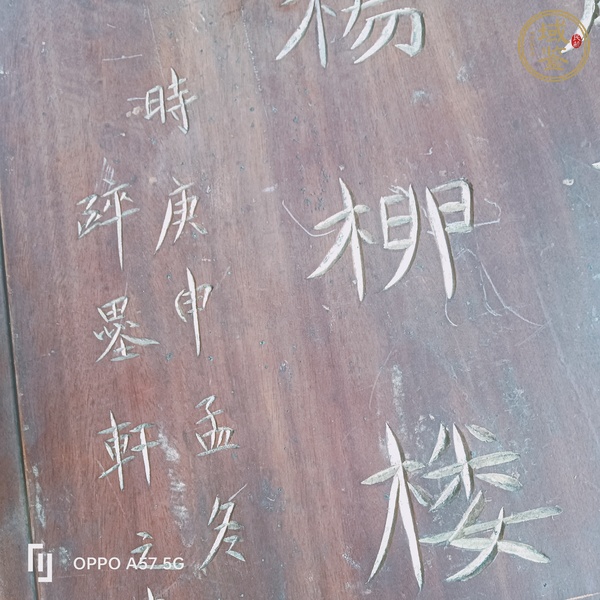 楊柳楼
時庚申孟冬
醉墨軒之
OPPO A57 5G